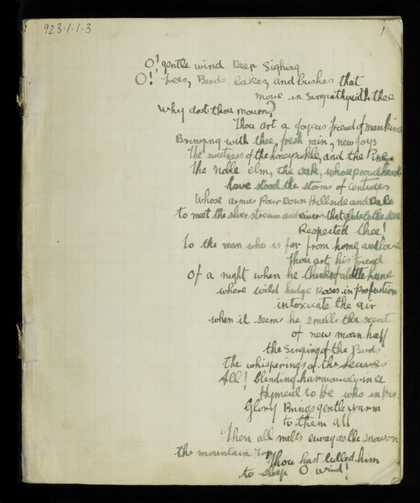 923.1.1.3
1
O! gentle wind Deep Sighing
O! Trees, Buds lakes, and bushes that
move in Sympathy with thee
Why dost thou mourn?
Thou art a joyous friend of mankind
Bringing with thee, fresh rain, new joys
The sweetness of the honeysuckle, and the Pine
The Noble elm, the oak, whose proud heads
have stood the storms of Centuries
Whose armies Pour Down Hillside and Dale
to meet the silver streams and river that glide to the sea
Respected thee!
To the man who is far from home and love
Thou art his friend
Of a night when he thinks of a little home
where wild hedge Roses in profusion
intoxicate the air
when it seems he smells the scent
of new mown hay
the Singing of the Birds
The whisperings of the leaves
All! blending harmoniously in a
Hymeul to He who in His
Glory Brings gentle warm
to them all
Then all melts away as the snow on
the mountain Top
Thou hast lulled him
to sleep O wind!